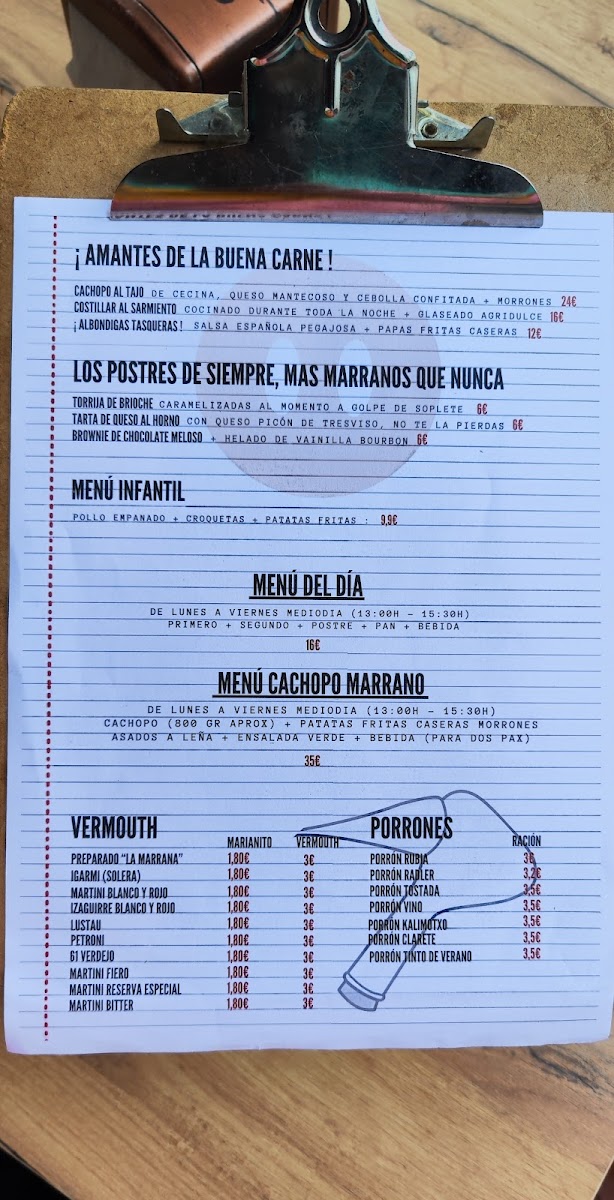 ¡ AMANTES DE LA BUENA CARNE !
CACHOPO AL TAJO DE CECINA, QUESO MANTECOSO Y CEBOLLA CONFITADA + MORRONES 24€
COSTILLAR AL SARMIENTO COCINADO DURANTE TODA LA NOCHE + GLASEADO AGRIDULCE 16€
¡ALBONDIGAS TASQUERAS! SALSA ESPAÑOLA PEGAJOSA + PAPAS FRITAS CASERAS 12€
LOS POSTRES DE SIEMPRE, MAS MARRANOS QUE NUNCA
TORRIJA DE BRIOCHE CARAMELIZADAS AL MOMENTO A GOLPE DE SOPLETE 6€
TARTA DE QUESO AL HORNO CON QUESO PICÓN DE TRESVISO, NO TE LA PIERDAS 6€
BROWNIE DE CHOCOLATE MELOSO + HELADO DE VAINILLA BOURBON 6€
MENÚ INFANTIL
POLLO EMPANADO + CROQUETAS + PATATAS FRITAS : 9,9€
MENÚ DEL DÍA
DE LUNES A VIERNES MEDIODIA (13:00H - 15:30H)
PRIMERO + SEGUNDO + POSTRE + PAN + BEBIDA
16€
MENÚ CACHOPO MARRANO
DE LUNES A VIERNES MEDIODIA (13:00H - 15:30H)
CACHOPO (800 GR APROX) + PATATAS FRITAS CASERAS MORRONES
ASADOS A LEÑA + ENSALADA VERDE + BEBIDA (PARA DOS PAX)
35€
VERMOUTH
MARIANITO VERMOUTH
PREPARADO "LA MARRANA" 1,80€ 3€
IGARMI (SOLERA) 1,80€ 3€
MARTINI BLANCO Y ROJO 1,80€ 3€
IZAGUIRRE BLANCO Y ROJO 1,80€ 3€
LUSTAU 1,80€ 3€
PETRONI 1,80€ 3€
61 VERDEJO 1,80€ 3€
MARTINI FIERO 1,80€ 3€
MARTINI RESERVA ESPECIAL 1,80€ 3€
MARTINI BITTER 1,80€ 3€
PORRONES
RACIÓN
PORRÓN RUBIA 3€
PORRÓN RADLER 3,2€
PORRÓN TOSTADA 3,5€
PORRÓN VINO 3,5€
PORRÓN KALIMOTXO 3,5€
PORRÓN CLARETE 3,5€
PORRÓN TINTO DE VERANO 3,5€